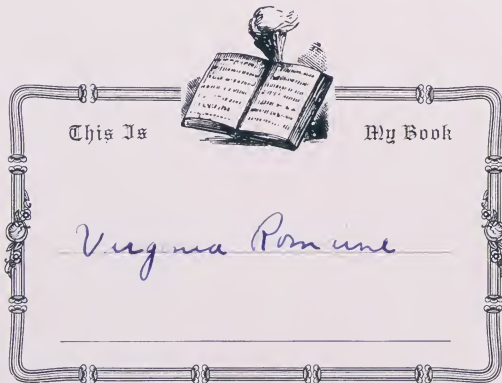 This Is My Book
Virginia Romine